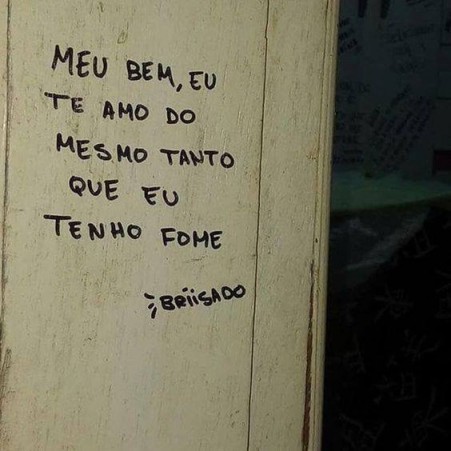 MEU BEM, EU
TE AMO DO
MESMO TANTO
QUE EU
TENHO FOME
BRIISADO